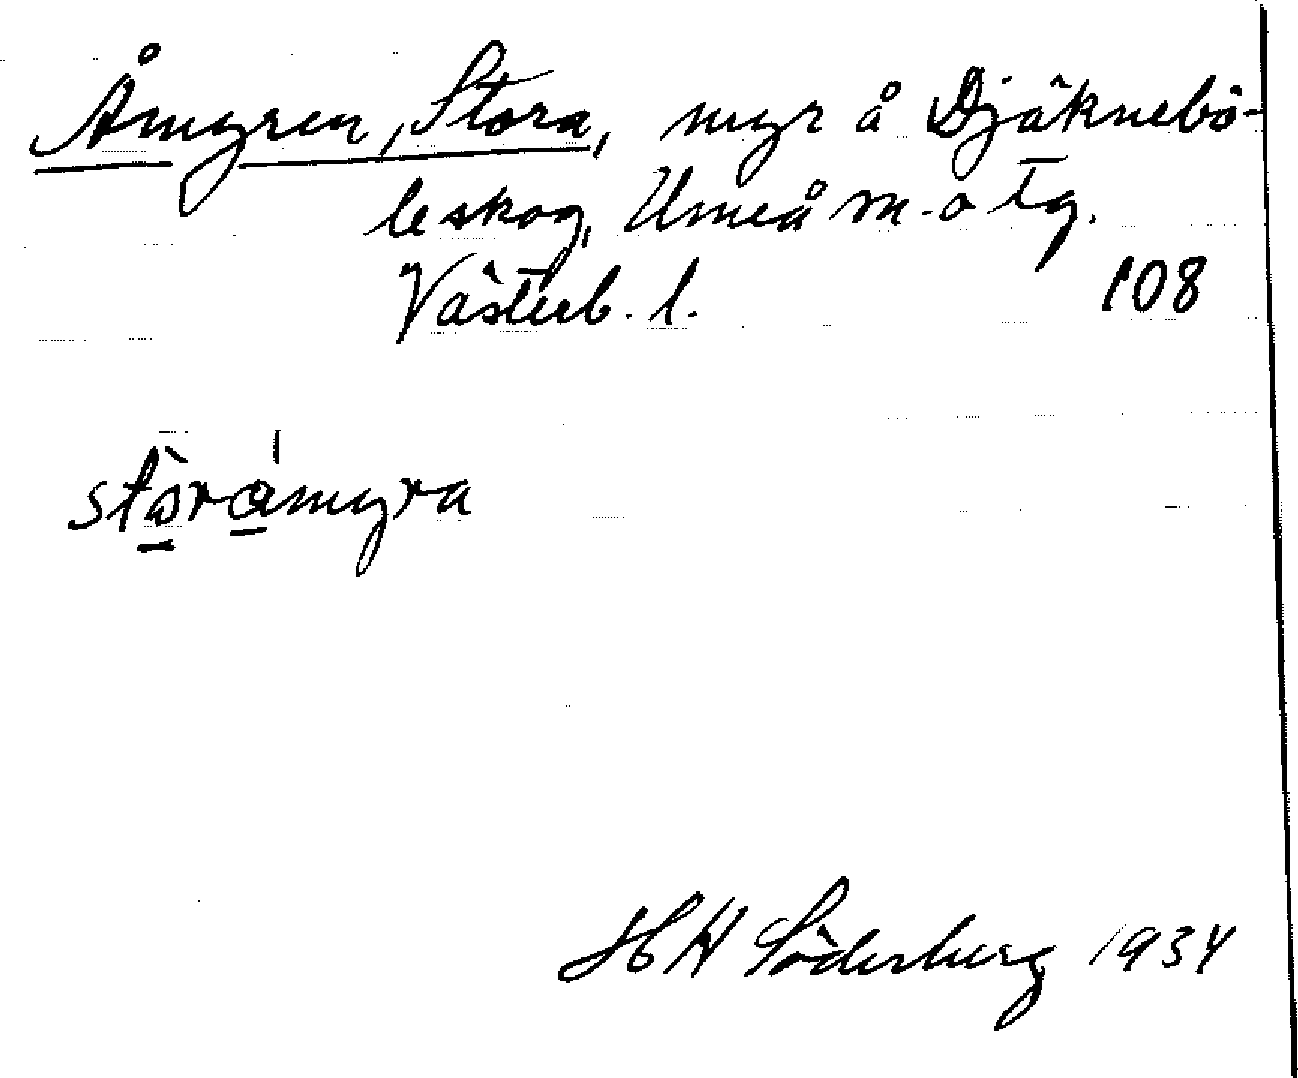 Åmyren, Stora, myr å Djäknebö-
leskog, Umeå m. o tg.
Västerb. l. 108
störåmyra
H H Söderberg 1934